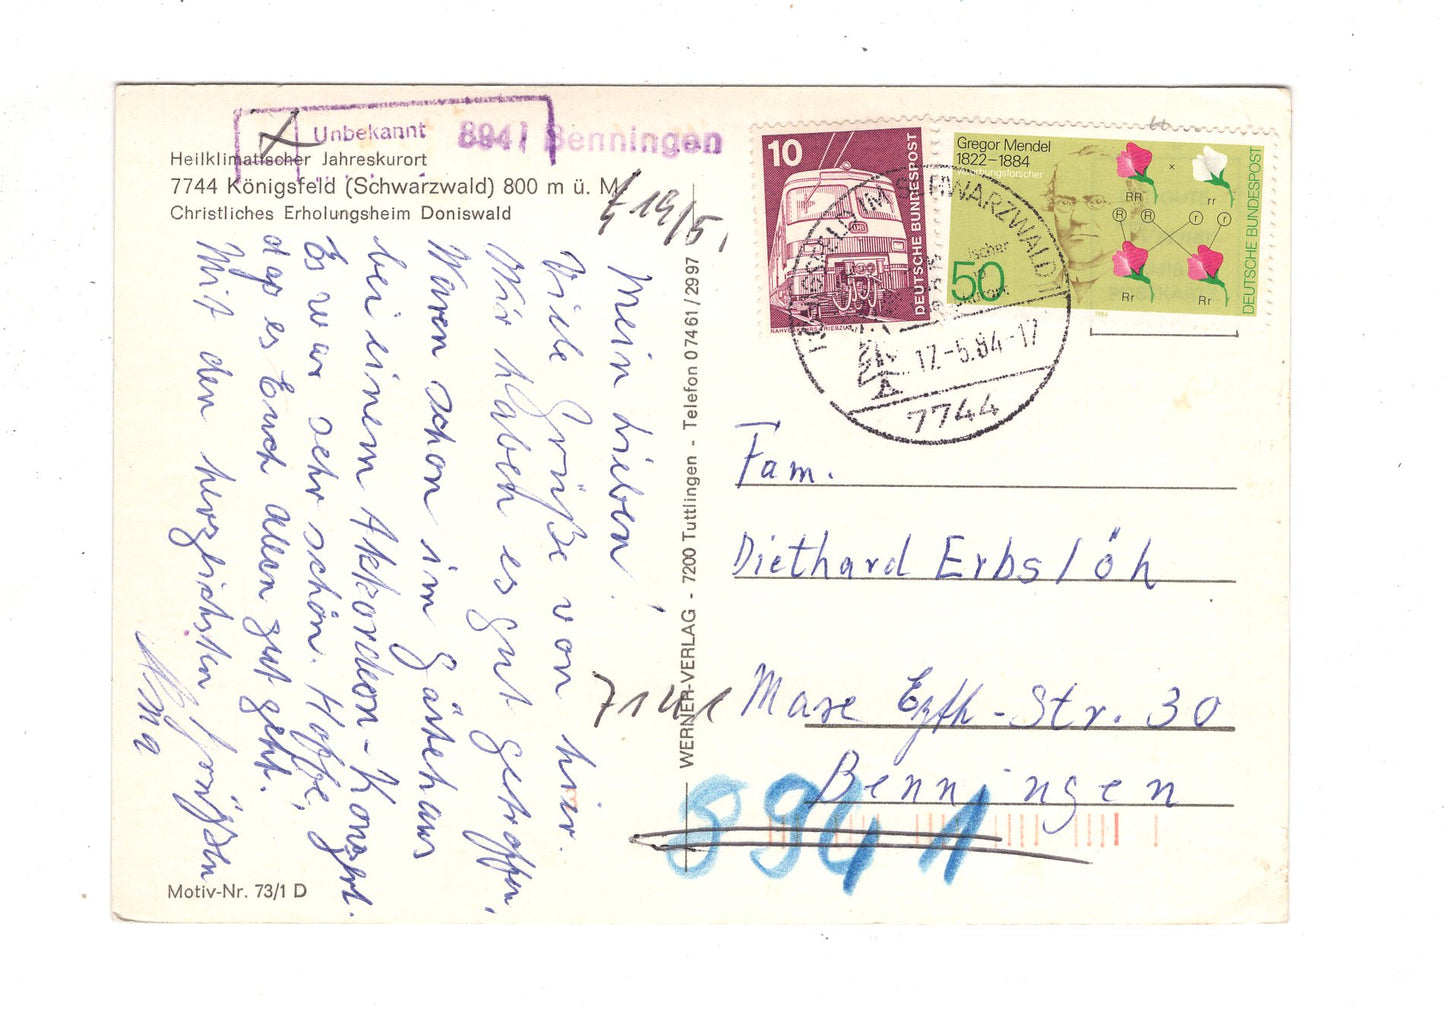 Unbekannt
8941 Benningen
Heilklimatischer Jahreskurort
7744 Königsfeld (Schwarzwald) 800 m ü. M.
Christliches Erholungsheim Doniswald
19/5.
Mein Lieben!
Viele Grüße von hier.
Wir haben es gut getroffen,
Waren schon im Gästehaus
bei einem Akkordeon-Konzert.
Es war sehr schön. Hoffe,
daß es Euch allen gut geht.
Mit den herzlichsten Grüßen
Motiv-Nr. 73/1 D
WERNER-VERLAG - 7200 Tuttlingen - Telefon 07461/2997
10
DEUTSCHE BUNDESPOST
Gregor Mendel
1822–1884
Vererbungsforscher
RR × rr
R R r r
Rr Rr
50
1984
DEUTSCHE BUNDESPOST
KÖNIGSFELD IM SCHWARZWALD 1
17.-5.84-17
7744
Fam.
Diethard Erbslöh
7141
Max Eyth-Str. 30
Benningen
8941